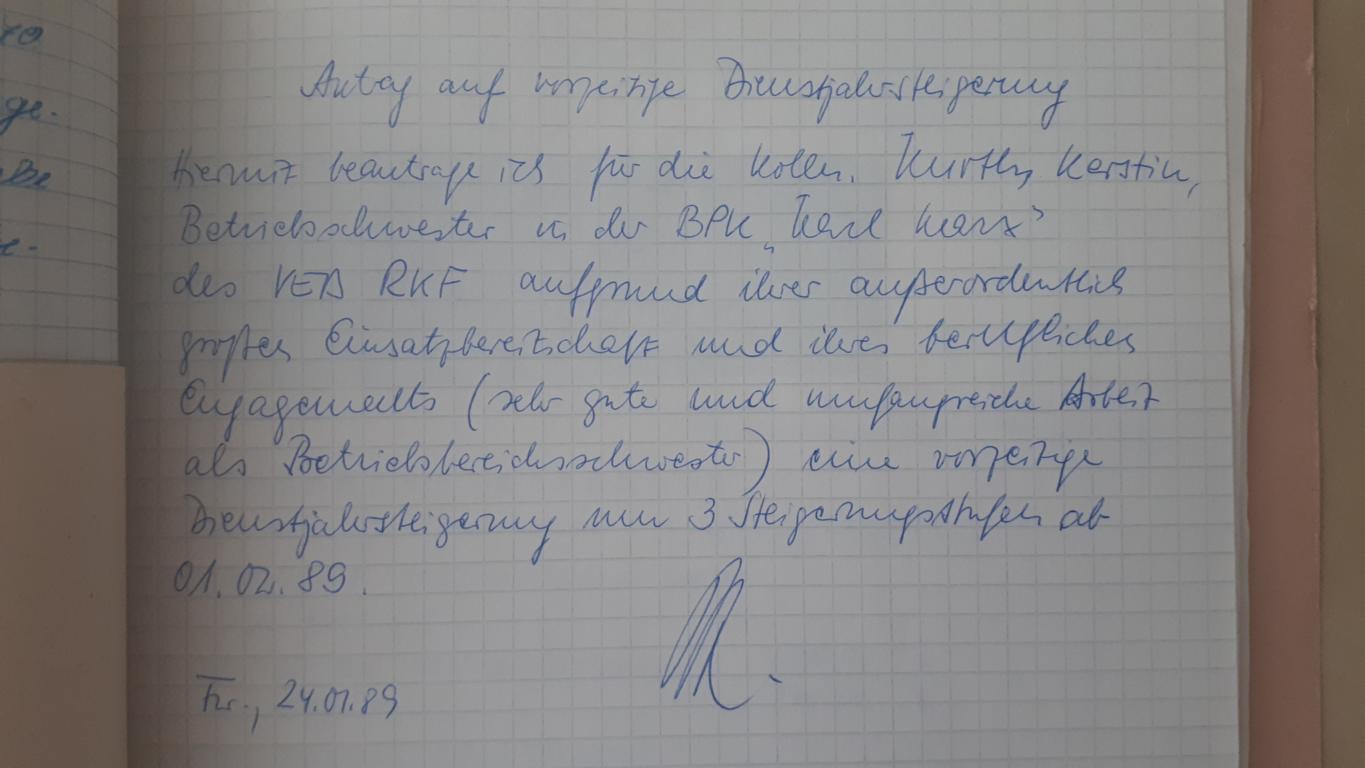 Antrag auf vorzeitige Dienstjahrsteigerung
Hiermit beantrage ich für die Kolln. Kurth, Kerstin,
Betriebsschwester in der BPK „Karl Marx“
des VEB RKF aufgrund ihrer außerordentlich
großen Einsatzbereitschaft und ihres beruflichen
Engagements (sehr gute und umfangreiche Arbeit
als Betriebsbereichsschwester) eine vorzeitige
Dienstjahrsteigerung um 3 Steigerungsstufen ab
01.02.89.
24.01.89